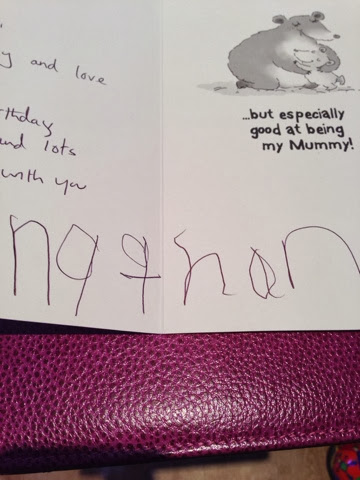 y and love
rthday
and lots
with you
...but especially
good at being
my Mummy!
nathan